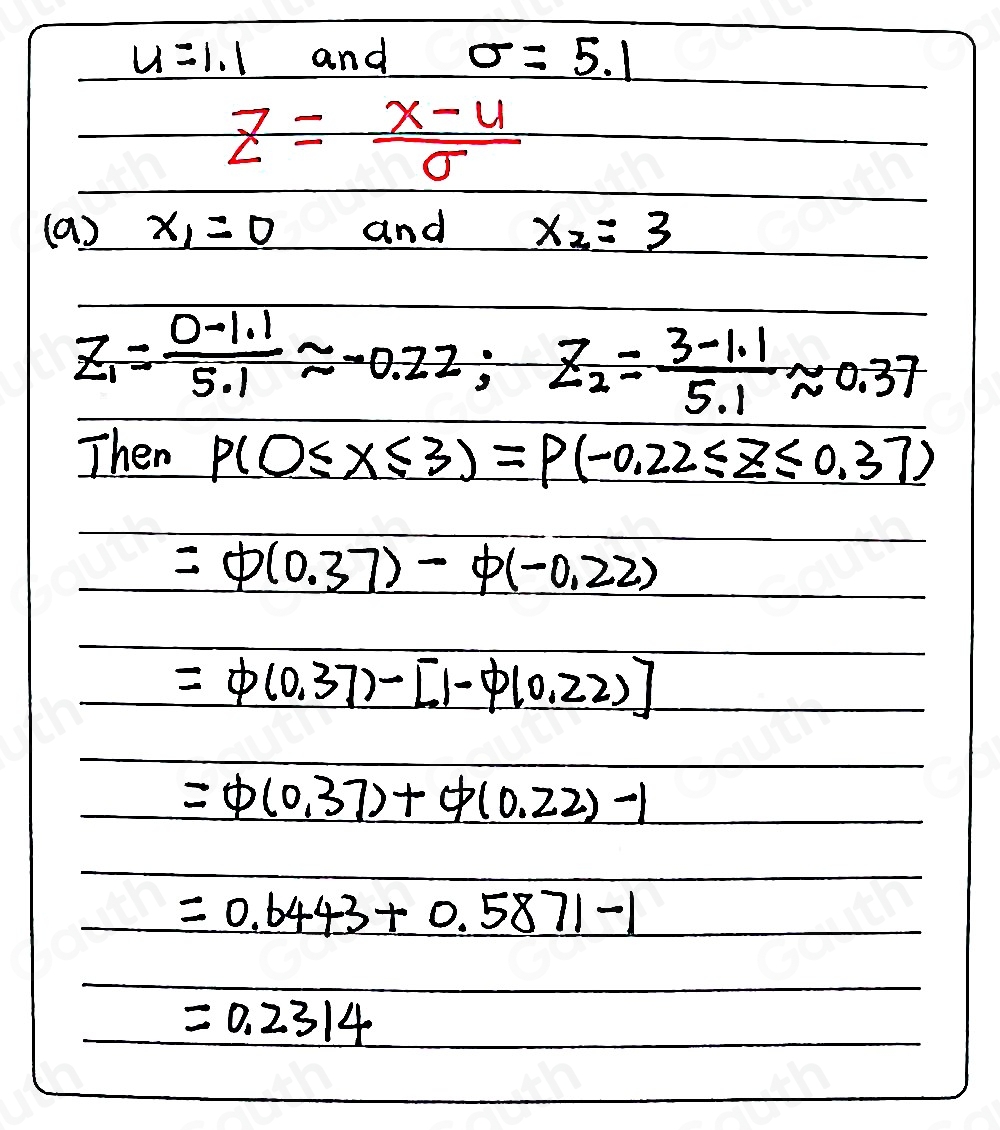 u=1.1 and σ= 5.1
Z = (x-u)/σ
(a) x₁=0 and x₂= 3
Z₁=(0-1.1)/5.1≈-0.22; Z₂=(3-1.1)/5.1≈0.37
Then P(0≤x≤3)=P(-0.22≤Z≤0.37)
= φ(0.37)- φ(-0.22)
= φ(0.37)-[1-φ(0.22)]
=φ(0.37)+φ(0.22)-1
= 0.6443+ 0.5871-1
= 0.2314
Gauth